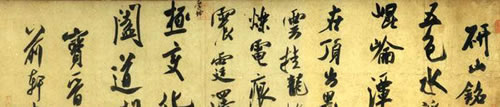 研山銘
五色水
崐崘潭
在頂出黑
雲挂龍
爍電痕
震霆澤
極變化
闔道
寶晉
前軒